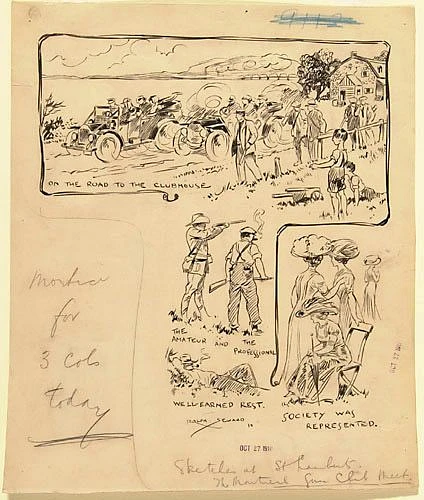 ON THE ROAD TO THE CLUBHOUSE
THE AMATEUR AND THE PROFESSIONAL
WELL-EARNED REST.
SOCIETY WAS
REPRESENTED.
for
3 cols
today
OCT 27 1910
OCT 27 1910
Sketches at St Lambert.
The Montreal Gun Club Meet